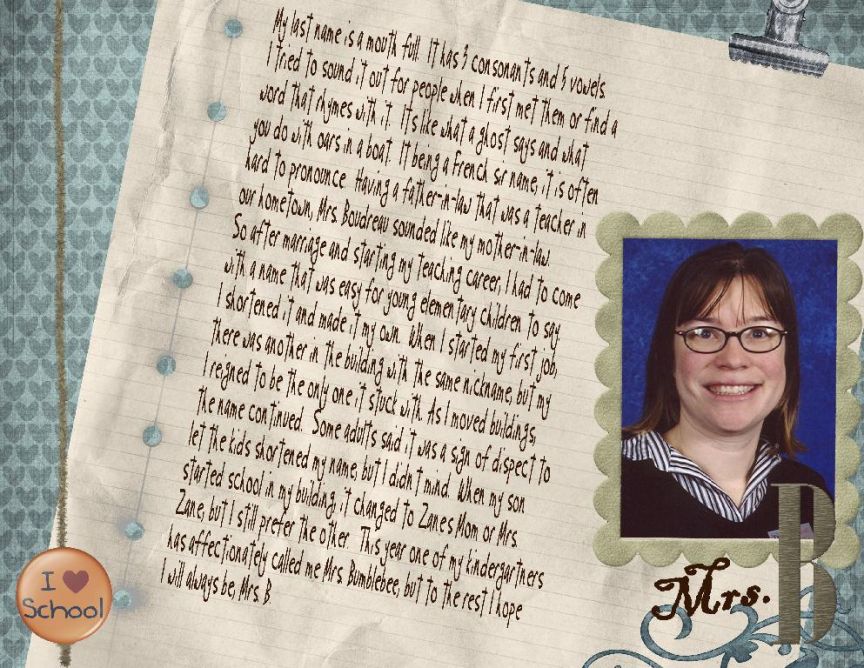 My last name is a mouth full. It has 3 consonants and 5 vowels.
I tried to sound it out for people when I first met them or find a
word that rhymes with it. It's like what a ghost says and what
you do with oars in a boat. It being a french sir name, it is often
hard to pronounce. Having a father-in-law that was a teacher in
our hometown, Mrs. Boudreau sounded like my mother-in-law.
So after marriage and starting my teaching career, I had to come
with a name that was easy for young elementary children to say
I shortened it and made it my own. When I started my first job,
there was another in the building with the same nickname, but my
I reigned to be the only one it stuck with. As I moved buildings,
the name continued. Some adults said it was a sign of dispect to
let the kids shortened my name, but I didn't mind. When my son
started school in my building, it changed to Zane's Mom or Mrs.
Zane, but I still prefer the other. This year one of my kindergartners
has affectionately called me Mrs. Bumblebee, but to the rest I hope
I will always be, Mrs. B.
I ♥
School
Mrs. B